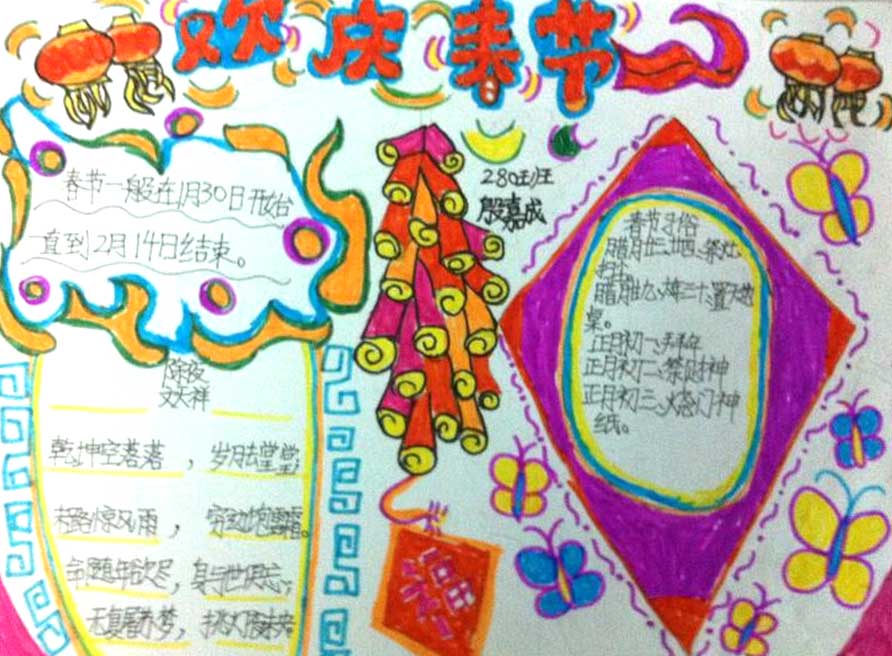 欢庆春节
春节一般在1月30日开始
一直到2月14日结束。
280班
殷嘉成
除夜
文天祥
乾坤空落落，岁月去堂堂；
末路惊风雨，穷边饱雪霜。
命随年欲尽，身与世俱忘；
无复屠苏梦，挑灯夜未央
春节习俗
腊月廿三、廿四、祭灶、
扫尘。
腊月廿九、三十、置天地
桌。
正月初一、拜年
正月初二、祭财神
正月初三、烧门神
纸。